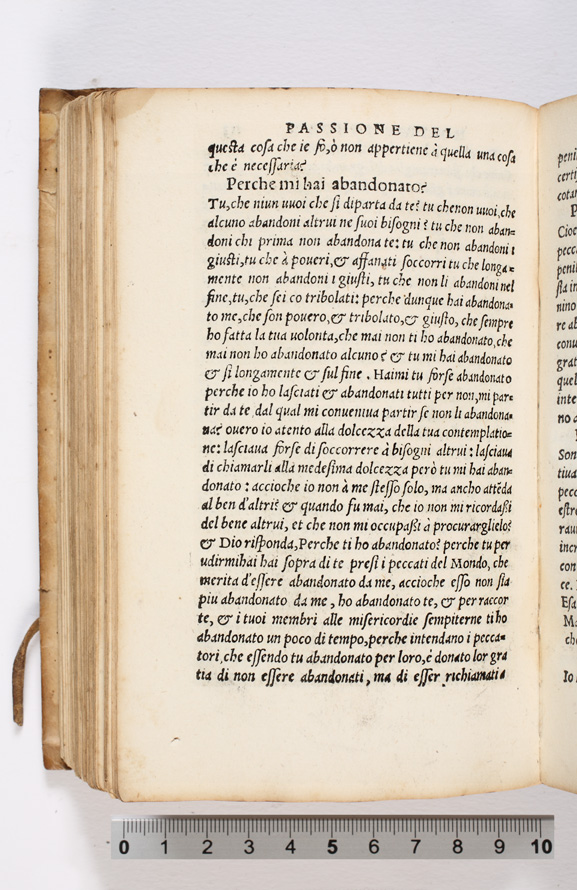 PASSIONE DEL
questa cosa che ie fò, ò non appertiene à quella una cosa
che é necessaria?
Perche mi hai abandonato?
Tu, che niun uuoi che si diparta da te? tu chenon uuoi, che
alcuno abandoni altrui ne suoi bisogni? tu che non aban-
doni chi prima non abandona te: tu che non abandoni i
giusti, tu che à poueri, & affanati soccorri tu che longa-
mente non abandoni i giusti, tu che non li abandoni nel
fine, tu, che sei co tribolati: perche dunque hai abandona-
to me, che son pouero, & tribolato, & giusto, che sempre
ho fatta la tua uolonta, che mai non ti ho abandonato, che
mai non ho abandonato alcuno? & tu mi hai abandonato
& si longamente & sul fine. Haimi tu forse abandonato
perche io ho lasciati & abandonati tutti per non, mi par-
tir da te dal qual mi conueniua partir se non li abandona-
ua? ouero io atento alla dolcezza della tua contemplatio-
ne: lasciaua forse di soccorrere à bisogni altrui: lasciaua
di chiamarli alla medesima dolcezza però tu mi hai aban-
donato: accioche io non à me stesso solo, ma ancho attēda
al ben d'altri? & quando fu mai, che io non mi ricordassi
del bene altrui, et che non mi occupassi à procurarglielo?
& Dio risponda, Perche ti ho abandonato? perche tu per
udirmihai hai sopra di te presi i peccati del Mondo, che
merita d'essere abandonato da me, accioche esso non sia
piu abandonato da me, ho abandonato te, & per raccor
te, & i tuoi membri alle misericordie sempiterne ti ho
abandonato un poco di tempo, perche intendano i pecca-
tori, che essendo tu abandonato per loro, é donato lor gra
tia di non essere abandonati, ma di esser richiamati à
peni
certi
cotan
P
Cioe
pecc
penit
sta in
nino
re ab
conu
grat
quel
inte
no a
Son
tiua
pecc
estre
rau
incr
con
ce.
Esa
Ma
che
Io
0 1 2 3 4 5 6 7 8 9 10